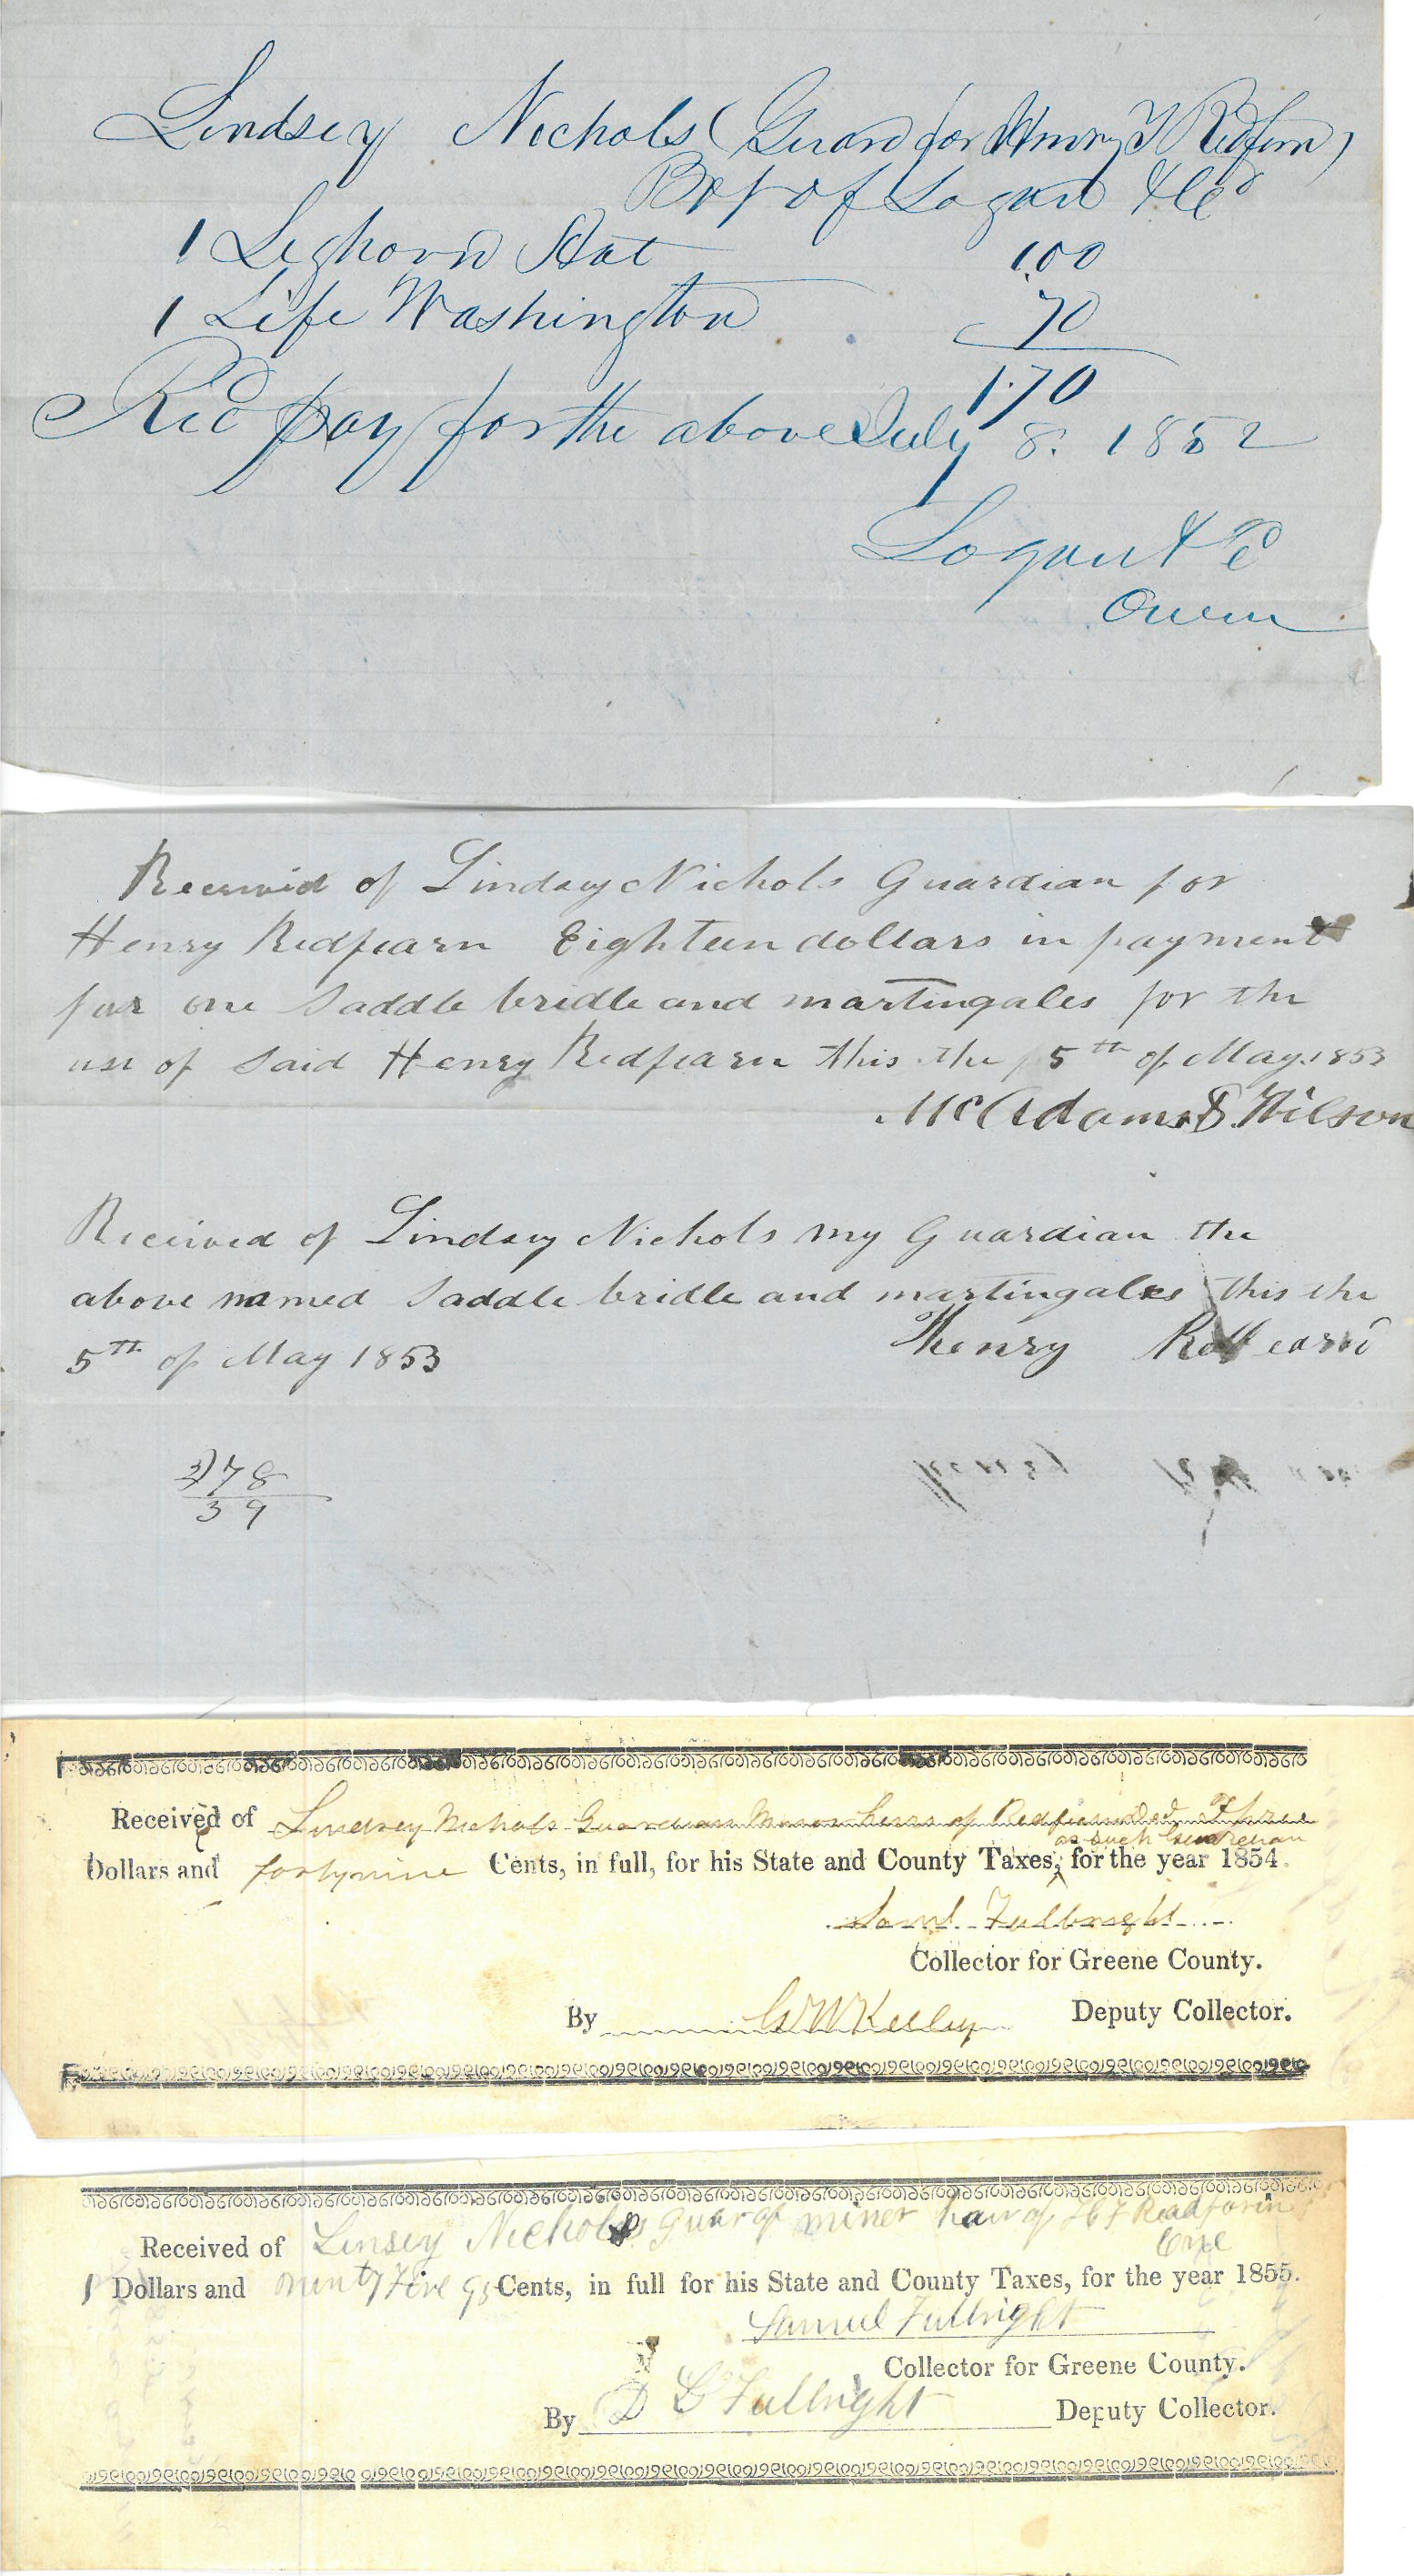 Lindsey Nichols (Guard for Henry T Redfern)
Bot of Logan & Co
1 Leghorn Hat 1.00
1 Life Washington 70
1.70
Recd pay for the above July 8. 1852
Logan & Co
Owen
Received of Lindsey Nichols Guardian for
Henry Redfearn Eighteen dollars in payment
for one saddle bridle and martingales for the
use of said Henry Redfearn this the 5th of May 1853
McAdams & Wilson
Received of Lindsey Nichols my Guardian the
above named saddle bridle and martingales this the
5th of May 1853 Henry Redfearn
2)78
39
Received of Lindsey Nichols Guardian Minor heirs of Redfearn Decd Three
as such Guardian
Dollars and fortynine Cents, in full, for his State and County Taxes, for the year 1854.
Saml Fulbright
Collector for Greene County.
By G W Kelley Deputy Collector.
Received of Linsey Nichols guar of miner hair of H T Readforin
One
1 Dollars and ninty Five 95 Cents, in full for his State and County Taxes, for the year 1855.
Samuel Fulbright
Collector for Greene County.
By D L Fulbright Deputy Collector.